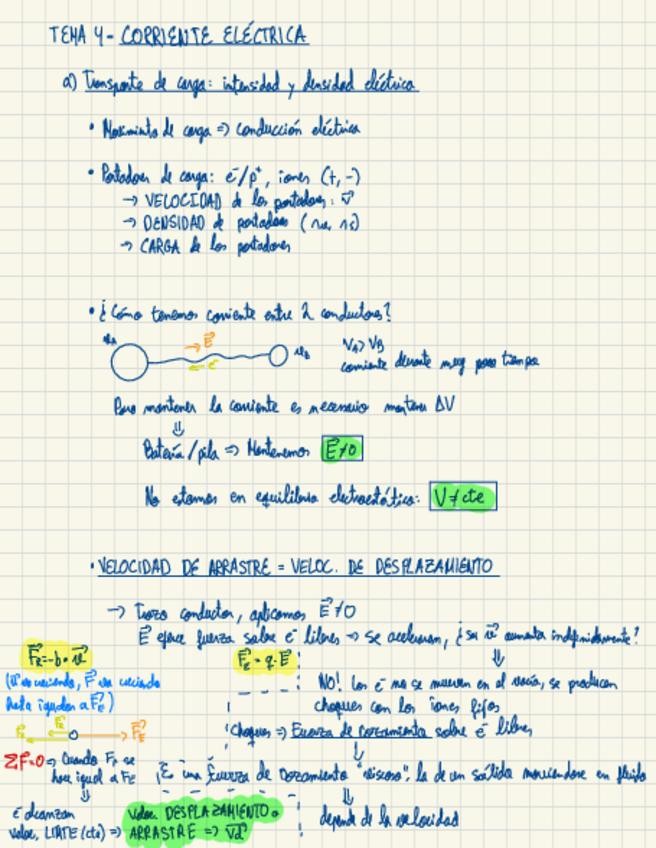 TEMA 4 - CORRIENTE ELÉCTRICA
a) Transporte de carga: intensidad y densidad eléctrica
• Movimiento de carga => conducción eléctrica
• Portadores de carga: e⁻/p⁺, iones (+, -)
→ VELOCIDAD de los portadores: v⃗
→ DENSIDAD de portadores
→ CARGA de los portadores
• ¿Cómo tenemos corriente entre 2 conductores?
E⃗
e⁻
VA > VB
corriente durante muy poco tiempo
Para mantener la corriente es necesario mantener ΔV
⇓
Batería/pila => Mantenemos E⃗≠0
No estamos en equilibrio electrostático: V≠cte
• VELOCIDAD DE ARRASTRE = VELOC. DE DESPLAZAMIENTO
→ Trozo conductor, aplicamos E⃗≠0
E⃗ ejerce fuerza sobre e⁻ libres → se aceleran, ¿su v⃗ aumenta indefinidamente?
F⃗r=-b·v⃗
F⃗e = q·E⃗
(v⃗ va creciendo, F⃗ va creciendo
hasta igualar a F⃗e)
NO! Los e⁻ no se mueven en el vacío, se producen
choques con los iones fijos
Choques => Fuerza de rozamiento sobre e⁻ libres
F⃗e
ΣF=0 => Cuando Fr se
hace igual a Fe
Es una fuerza de rozamiento "viscoso", la de un sólido moviéndose en fluido
⇓
depende de la velocidad
e⁻ alcanzan
veloc. LÍMITE (cte) =>
veloc. DESPLAZAMIENTO o
ARRASTRE => v⃗d